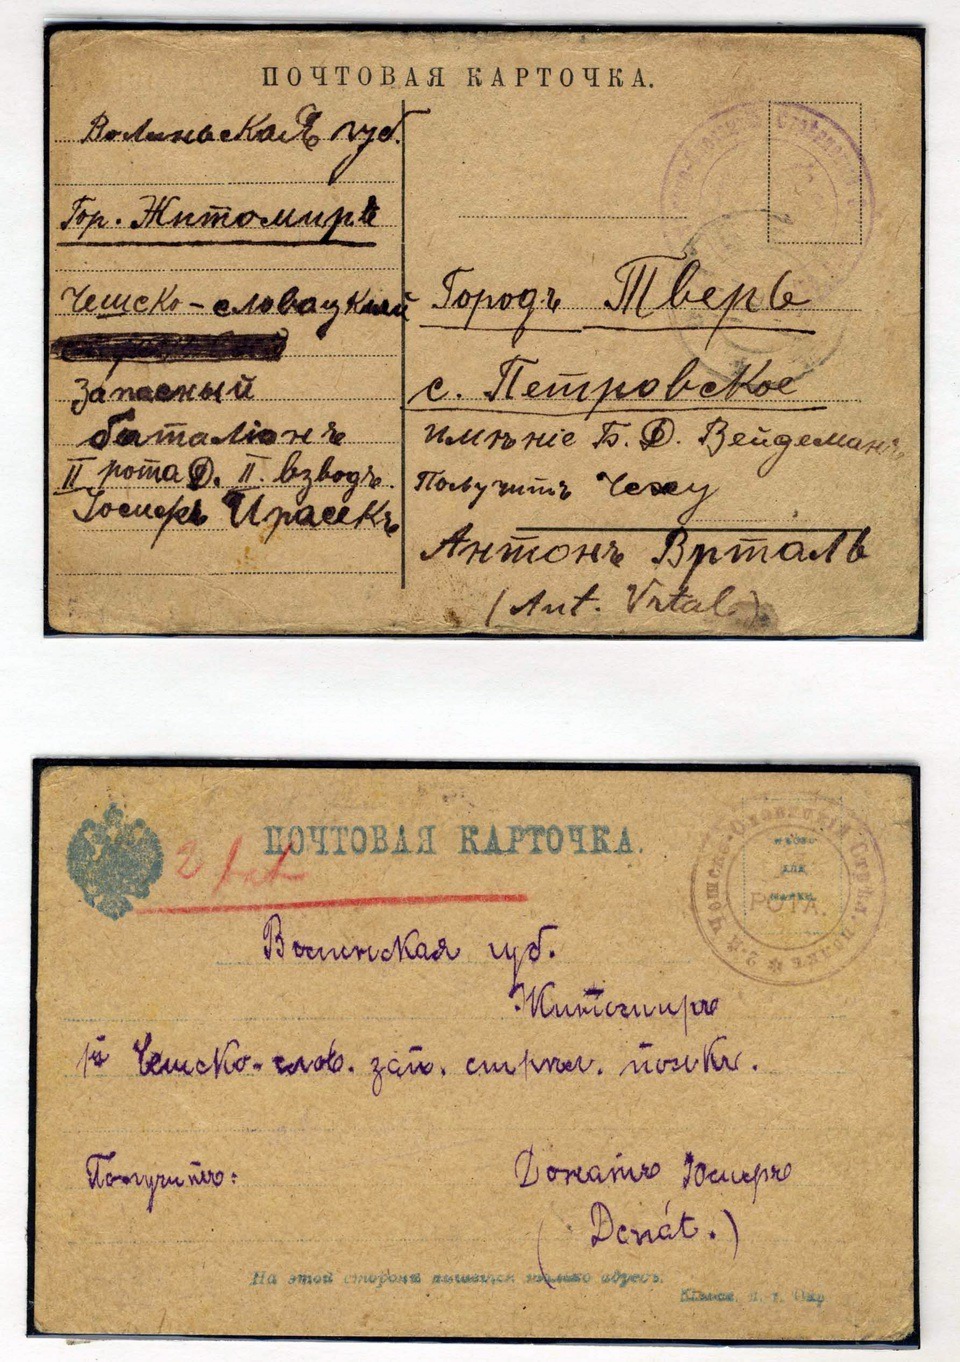 ПОЧТОВАЯ КАРТОЧКА.
Волиньская губ.
Гор. Житомиръ
Чешско-словацкий
Запасный
баталіонъ
II рота Д. II. взводъ.
Іосифъ Ирасекъ
Городъ Тверь
с. Петровское
имѣніе Б. Ф. Вейдеманъ
Получитъ Чеху
Антонъ Врталь
(Ant. Vrtal)
ПОЧТОВАЯ КАРТОЧКА.
2-й Чешско-Словацкій Стрѣл. полкъ
РОТА.
мѣсто
для
марки
Волинская губ.
Житомиръ
1й Чешско-слов. зап. стрѣл. полкъ.
Получитъ:
Донатъ Іосифъ
(Donát.)
На этой сторонѣ пишется только адресъ.